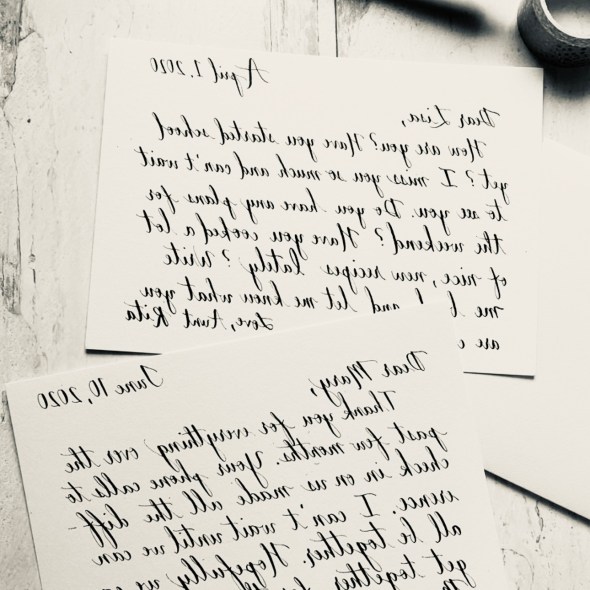 April 1, 2020
Dear Lisa,
How are you? Have you started school
yet? I miss you so much and can't wait
to see you. Do you have any plans for
the weekend? Have you cooked a lot
of nice, new recipes lately? Write
me and let me know what you
are
Love, Aunt Rita
June 10, 2020
Dear Mary,
Thank you for everything over the
past few months. Your phone calls to
check in on us made all the diff-
erence. I can't wait until we can
all be together. Hopefully we
get together